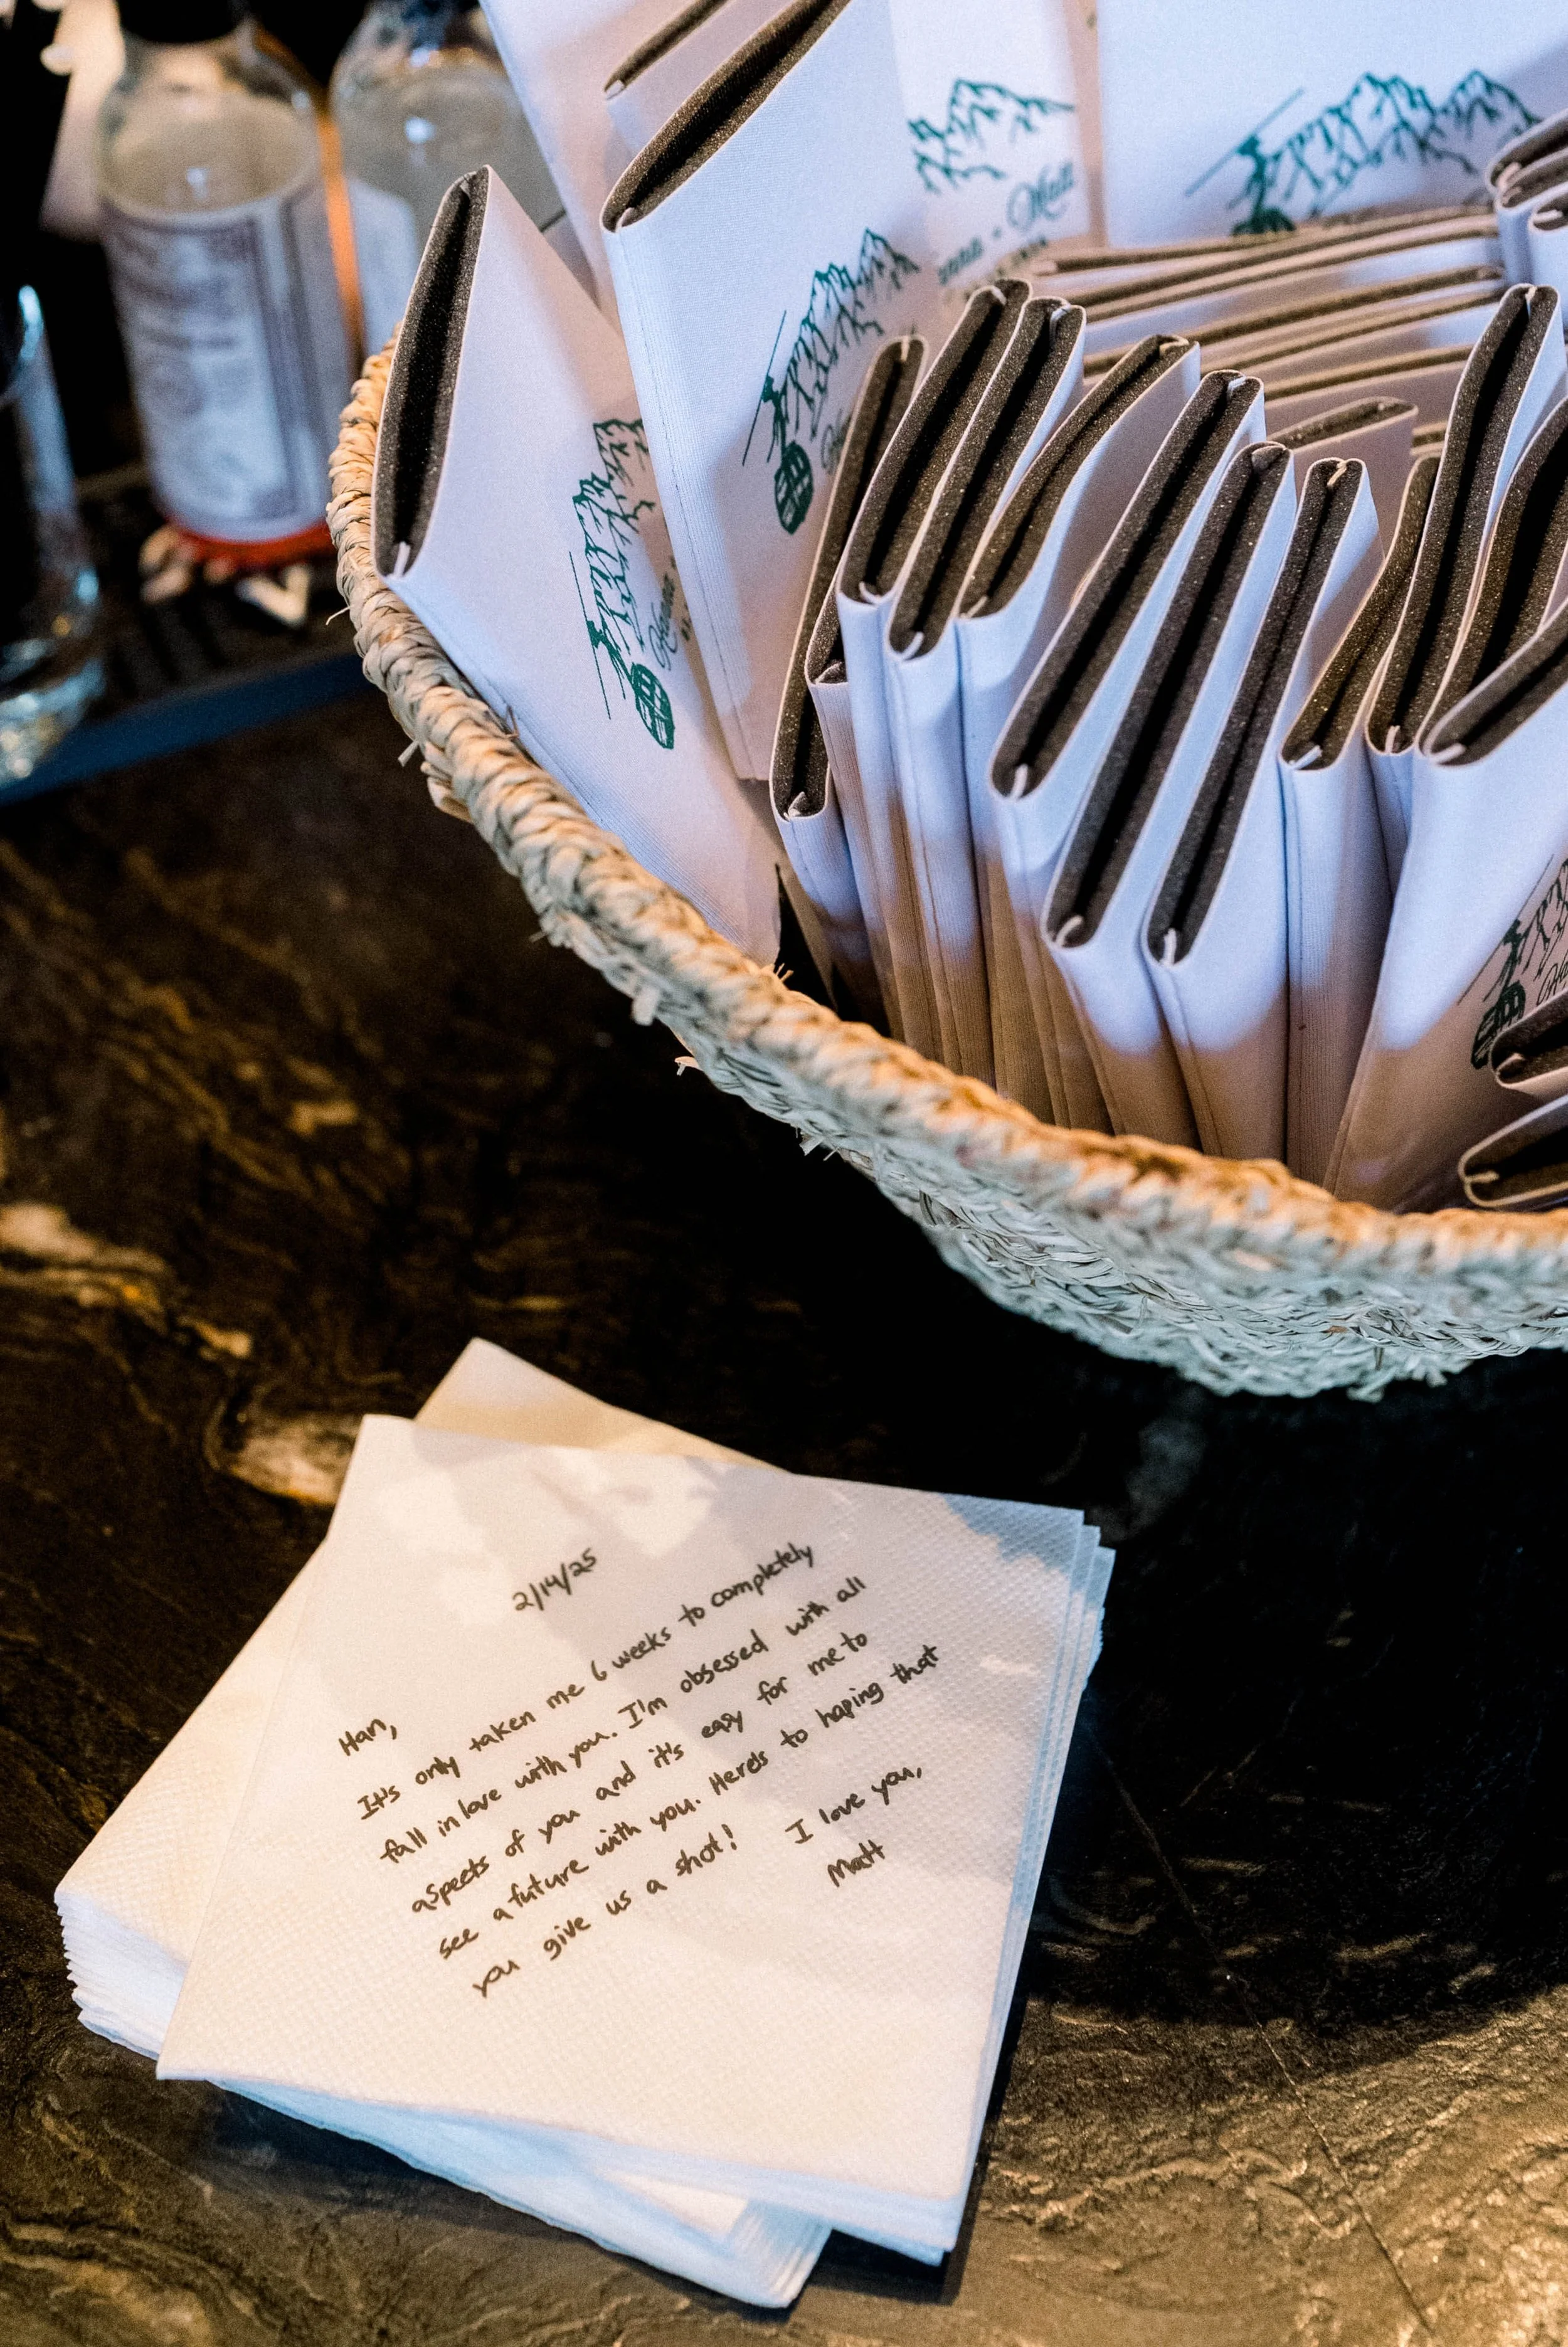 Matt
Hanna
2/14/25
Han,
It's only taken me 6 weeks to completely
fall in love with you. I'm obsessed with all
aspects of you and it's easy for me to
see a future with you. Here's to hoping that
you give us a shot!
I love you,
Matt